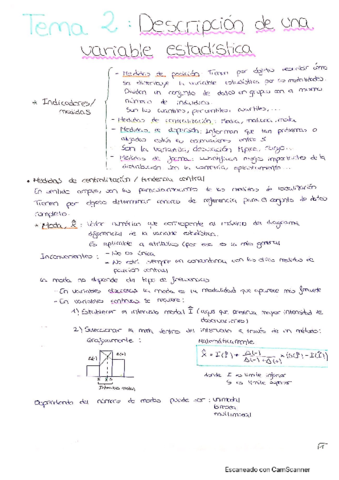 Tema 2: Descripción de una
variable estadística
- Medidas de posición: Tienen por objetivo describir cómo
se distribuye la variable estadística por sus modalidades.
Dividen un conjunto de datos en grupos con el mismo
número de individuos.
Son los cuartiles, percentiles, cuartiles, ...
* Indicadores/
medidas
- Medidas de centralización: Moda, mediana, media
- Medidas de dispersión: Informan que tan próximos o
alejados están los
Son la varianza, desviación típica, rango...
- Medidas de forma: rasgos importantes de la
distribución. Son la asimetría, apuntamiento...
* Medidas de centralización / tendencia central
En sentido amplio, son los de las medidas de localización
Tienen por objeto determinar valores de referencia para el conjunto de datos
completo.
* Moda, X̂: Valor numérico que corresponde al máximo del diagrama
diferencial de la variable estadística.
Es aplicable a atributos (por eso es la más general)
Inconvenientes: - No es única
- No está siempre en concordancia con las otras medidas de
posición central
La moda no depende del tipo de frecuencias
- En variables discretas la moda es la modalidad que aparece más frecuente
- En variables continuas se requiere:
1) Establecer el intervalo modal Î (aquel que muestra mayor intensidad de
observaciones)
2) Seleccionar la moda dentro del intervalo a través de un método:
Gráficamente:
Matemáticamente:
donde I es límite inferior
S es límite superior
Intervalo modal
Dependiendo del número de modas puede ser: unimodal
bimodal
multimodal
Escaneado con CamScanner